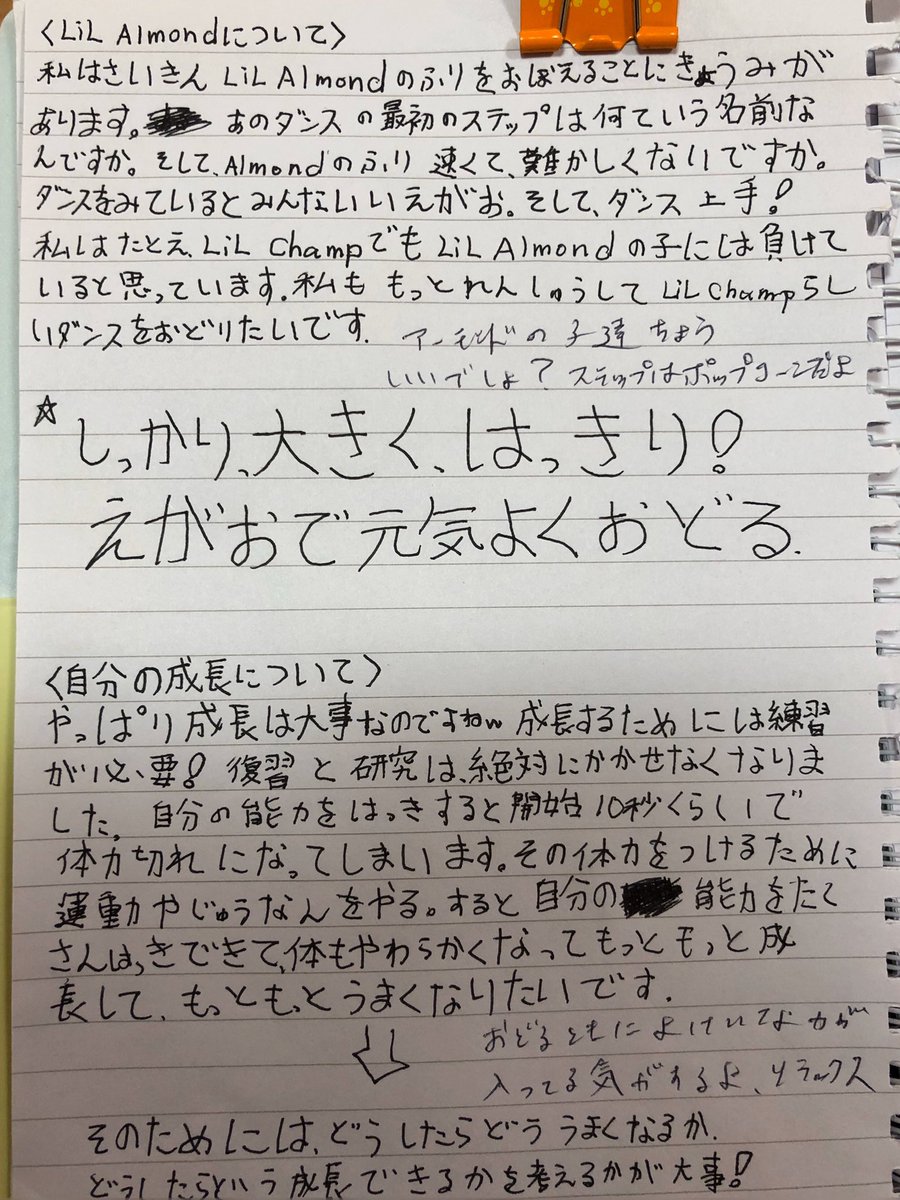 〈LiL Almondについて〉
私はさいきん LiL Almondのふりをおぼえることにきょうみが
あります。 あのダンスの最初のステップは何ていう名前な
んですか。そして、Almondのふり 速くて、難かしくないですか。
ダンスをみているとみんないいえがお。そして、ダンス上手!
私はたとえ、LiL ChampでもLiL Almondの子には負けて
いると思っています。私も もっとれんしゅうして LiL Champらし
いダンスをおどりたいです。
アーモンドの子達ちょう
いいでしょ? ステップはポップコーンだよ
☆
しっかり、大きく、はっきり!
えがおで元気よくおどる.
〈自分の成長について〉
やっぱり成長は大事なのですねw 成長するためには練習
が必要! 復習と研究は、絶対にかかせなくなりま
した。 自分の能力をはっきすると開始10秒くらいで
体力切れになってしまいます。その体力をつけるために
運動やじゅうなんをやる。すると自分の 能力をたく
さんはっきできて、体もやわらかくなってもっともっと成
長して、もっともっとうまくなりたいです.
おどるともによけいな力が
入ってる気がするよ、リラックス
そのためには、どうしたらどううまくなるか.
どうしたらどいう成長できるかを考えるかが大事!